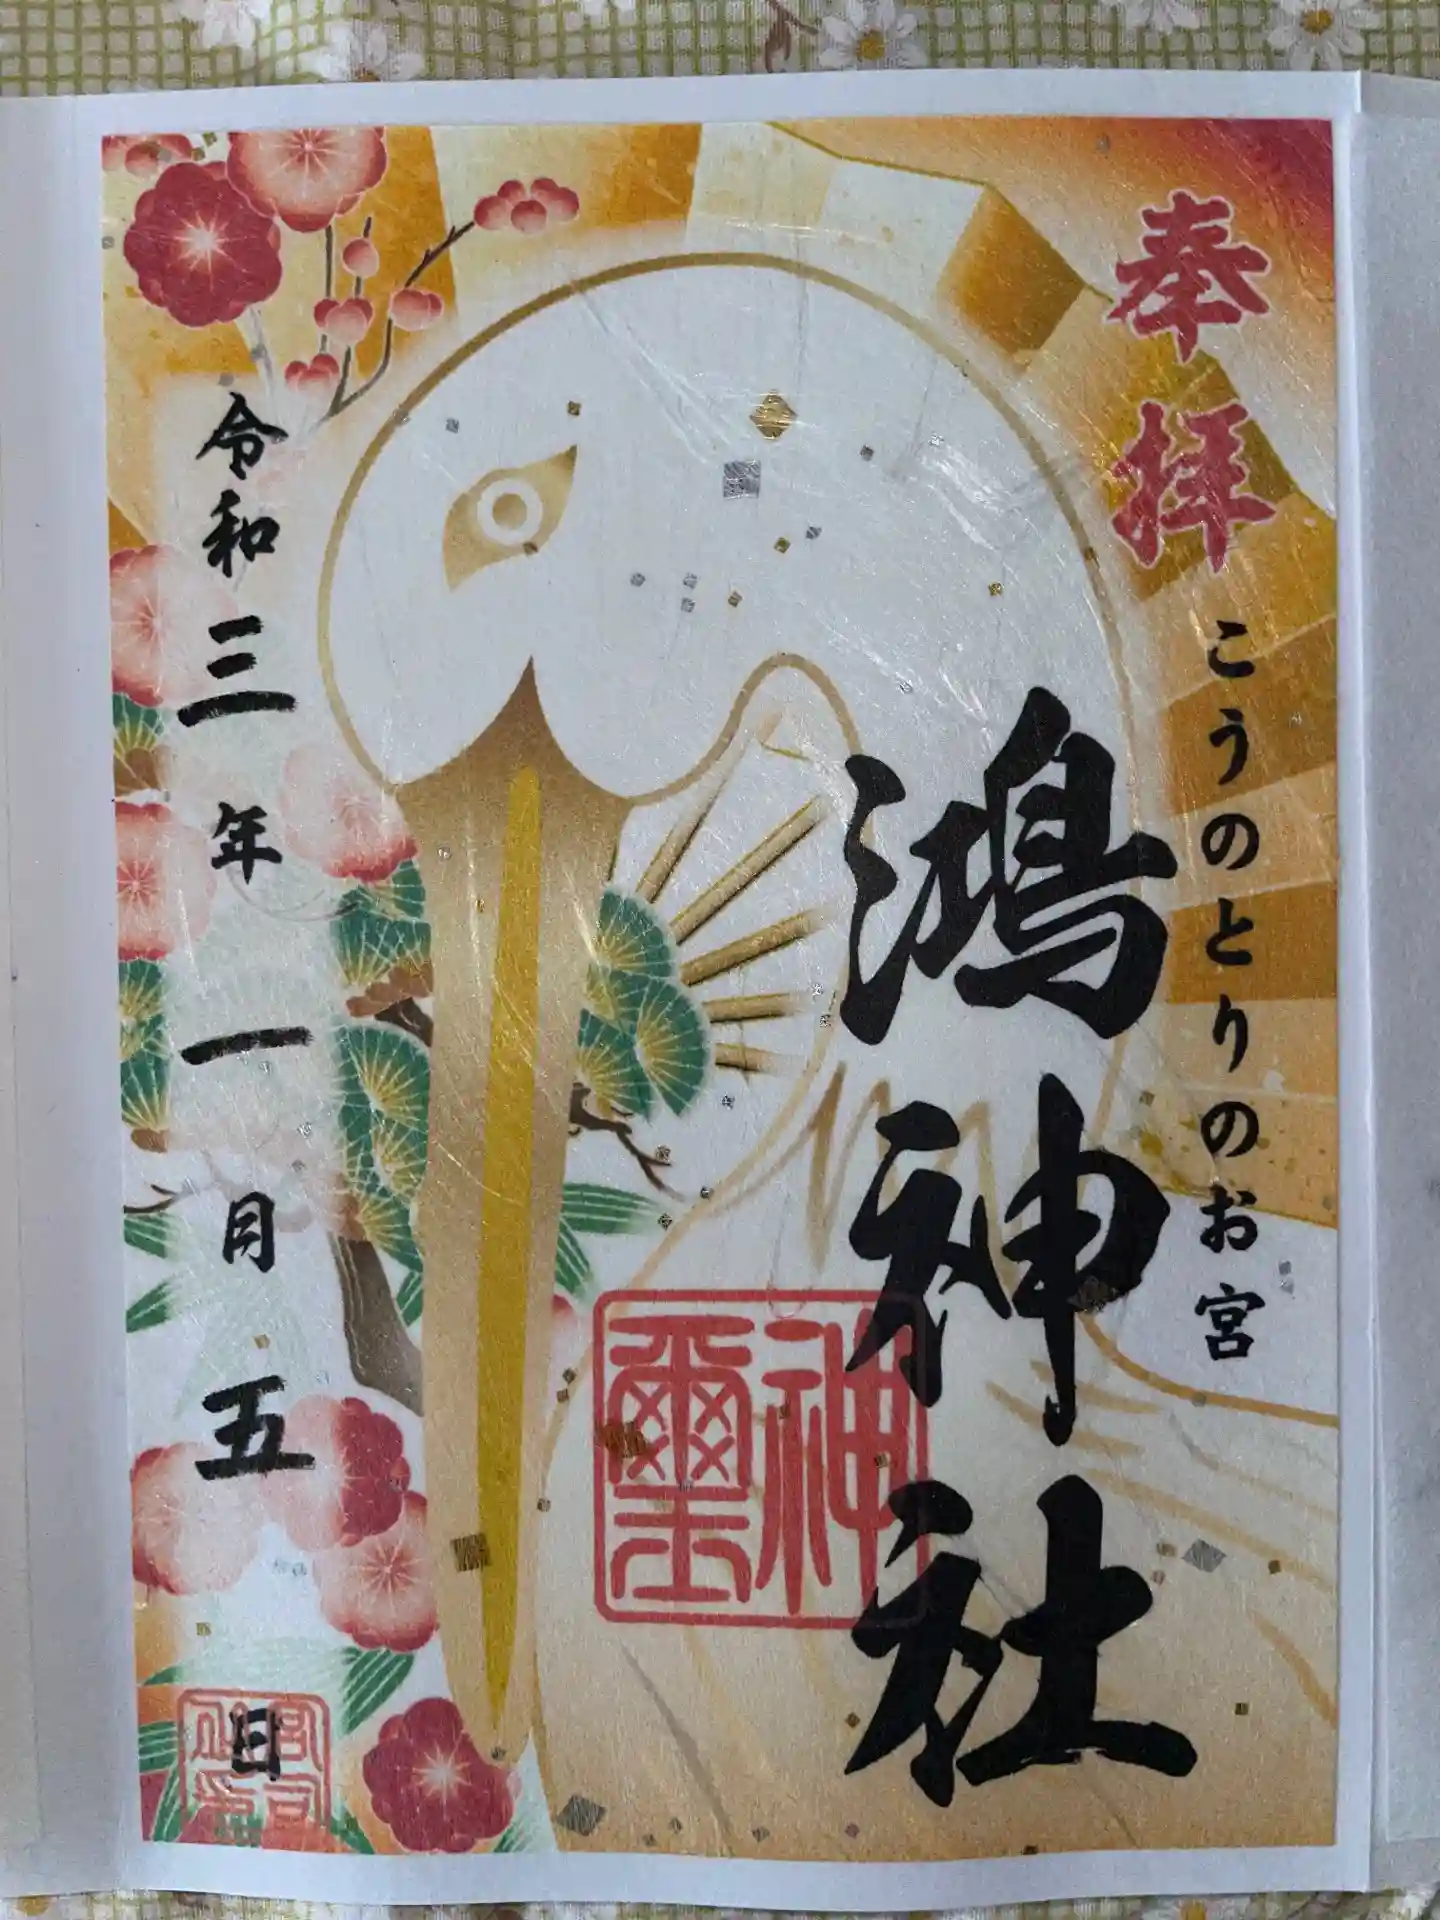 奉拝
こうのとりのお宮
鴻神社
神璽
令和三年一月五日
宮司之印